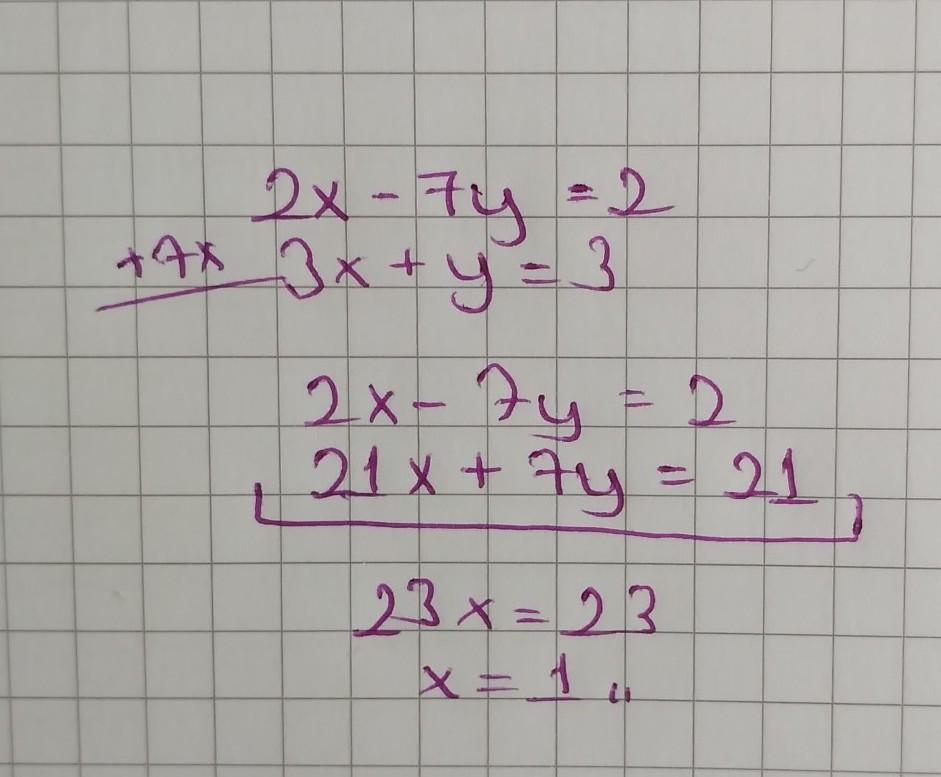 2x - 7y = 2
+7x 3x + y = 3
2x - 7y = 2
21x + 7y = 21
23x = 23
x = 1 "